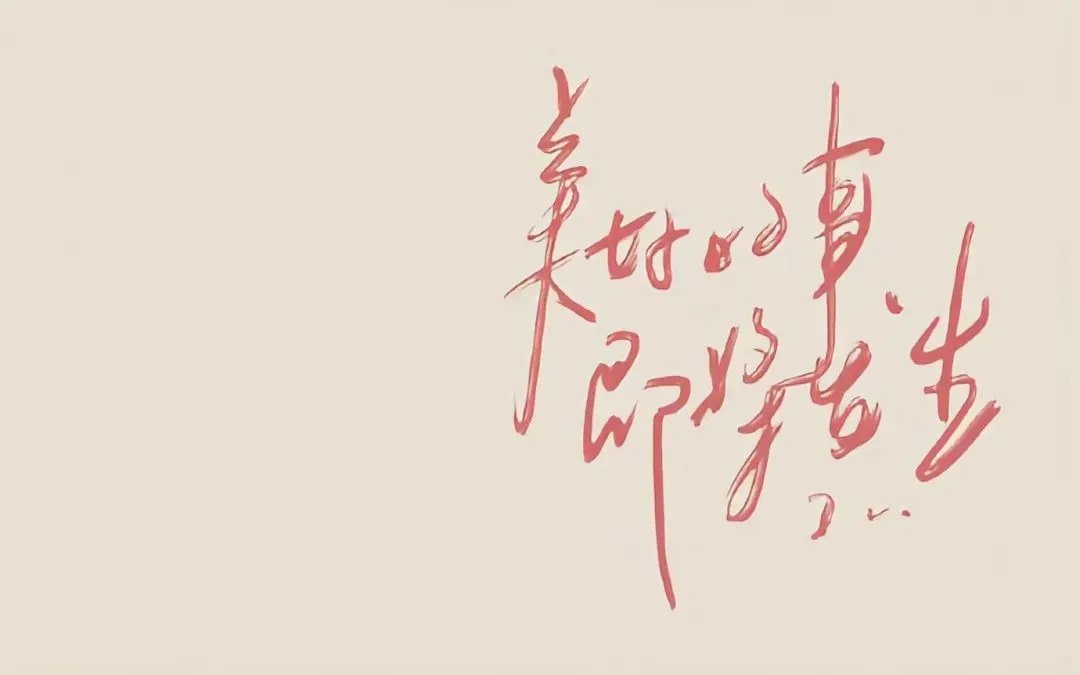 美好的事
即将发生